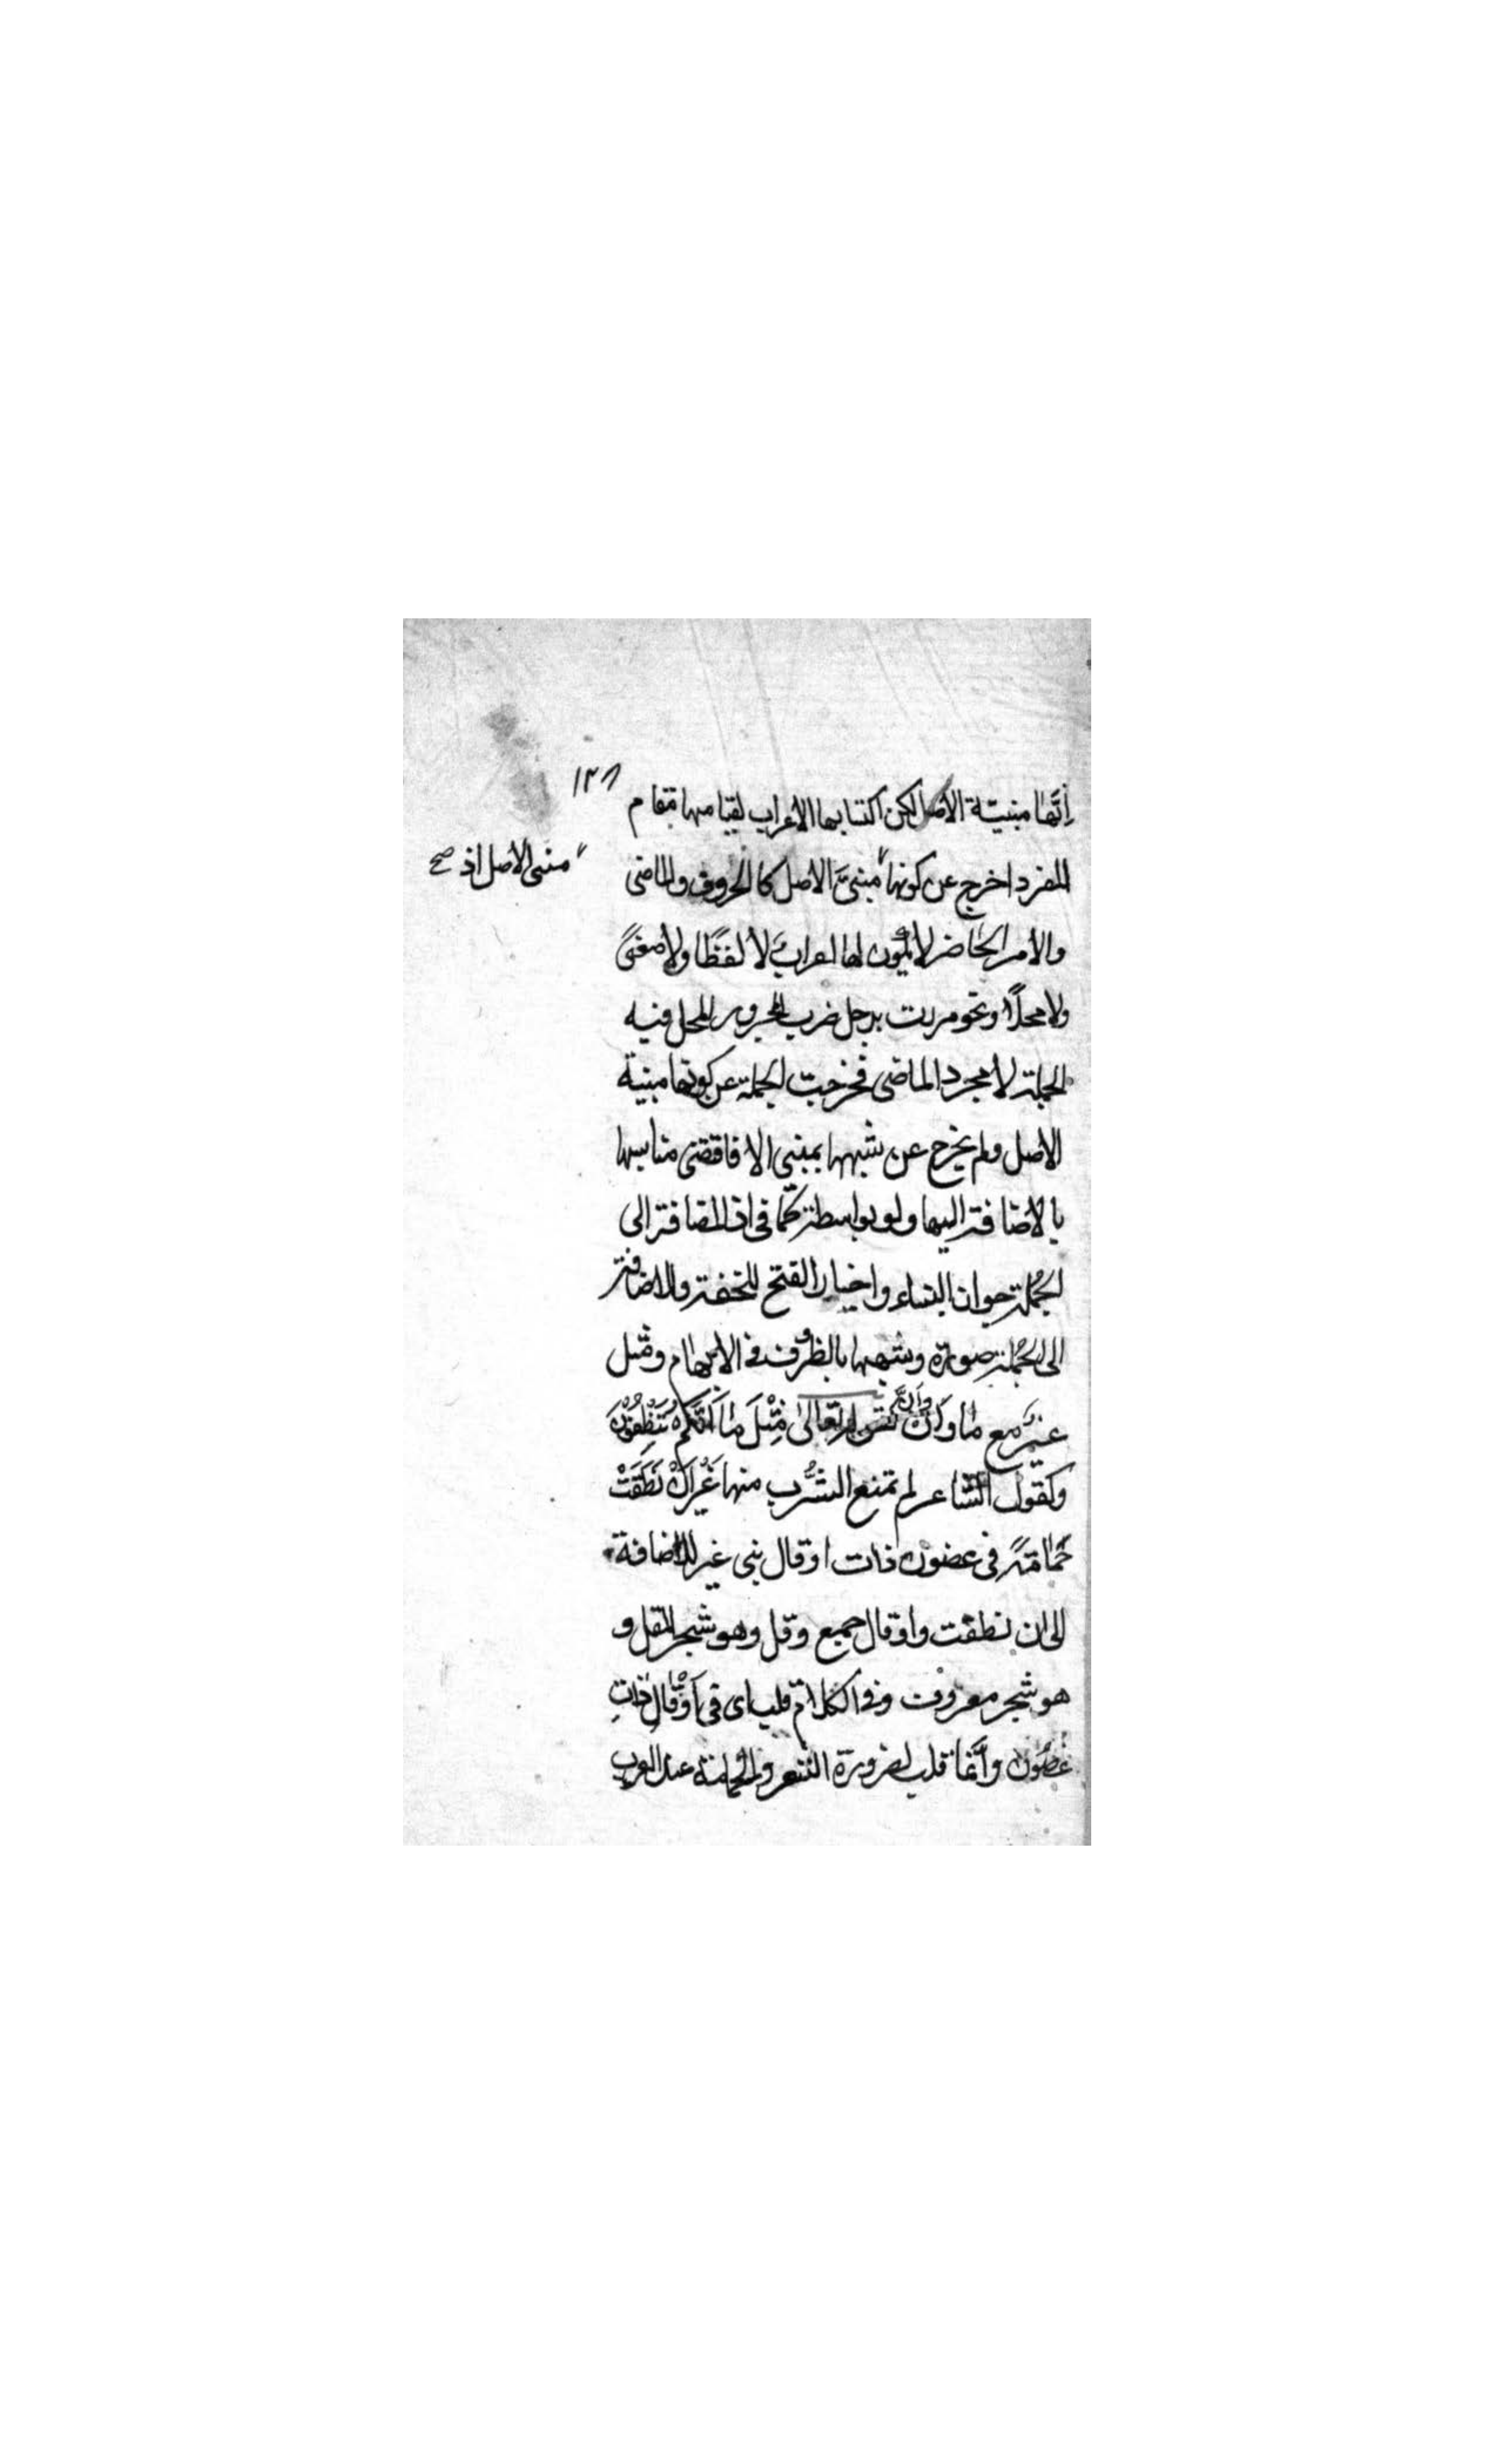 ١٣٨
اِنَّها مبنيّة الاصل لكن اكتسابها الاعراب لقيامها مقام
المفرد اخرج عن كونها مبنىَّ الاصل كالحروف والماضى
مبنى الاصل اذ صح
والامر الحاضر لا يكون لها اعرابٌ لا لفظًا ولا معنىً
ولا محلاً ونحو مررت برجل ضرب المجرور المحل فيه
الجملة لا مجرد الماضى فخرجت الجملة عن كونها مبنية
الاصل ولم يخرج عن شبهها بمبنى الا فاقتضى مناسبها
بالاضافة اليها ولو بواسطة كما فى اذ المضافة الى
الجُملة جواز البناء واختيار الفتح للخفة والاضافة
الى الجُملة صورة وشبهها بالظرف فى الابهام ومثل
غير مع ما وَاَنْ وَاَنَّ كقوله تعالى مِثْلَ مَا اَنَّكُمْ تَنْطِقُوْنَ
وكقول الشاعر لم تمنع الشُّرب منها غَيْرَ اَنْ نَطَقَتْ
حَمَامَةٌ فى غصون ذات اوقال بنى غير للاضافة
الى ان نطقت واوقال جمع وقل وهو شجر المقل و
هو شجر معروف وفى الكلام قلب اى فى اَوْقَالِ ذَاتِ
غصُون وانّما قلب لضرورة الشعر والحمامة عند العرب